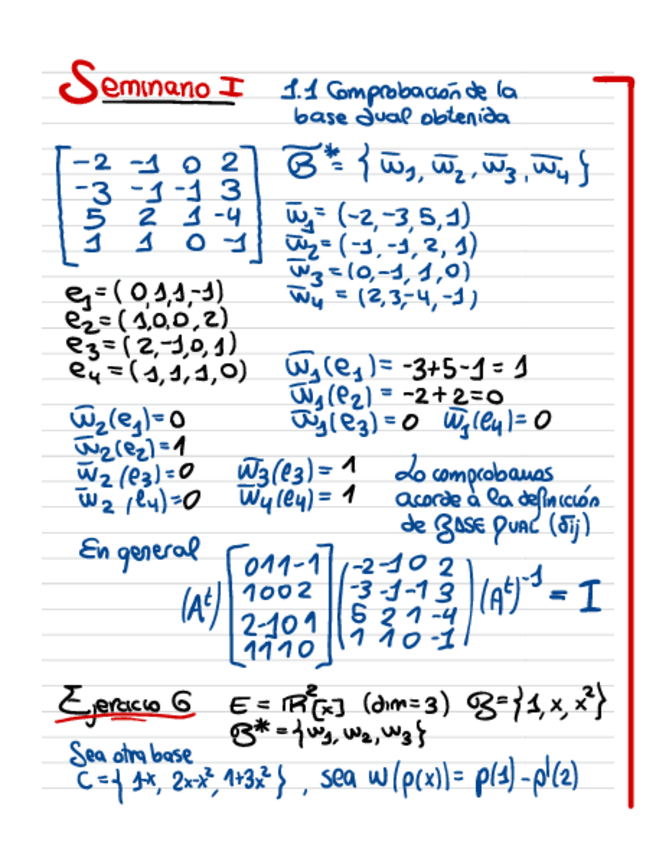 Seminario I
1.1 Comprobación de la
base dual obtenida
[-2 -1 0 2]
[-3 -1 -1 3]
[5 2 1 -4]
[1 1 0 -1]
B̄* = {w̄₁, w̄₂, w̄₃, w̄₄}
w̄₁ = (-2, -3, 5, 1)
w̄₂ = (-1, -1, 2, 1)
w̄₃ = (0, -1, 1, 0)
w̄₄ = (2, 3, -4, -1)
e₁ = (0, 1, 1, -1)
e₂ = (1, 0, 0, 2)
e₃ = (2, -1, 0, 1)
e₄ = (1, 1, 1, 0)
w̄₁(e₁) = -3+5-1 = 1
w̄₁(e₂) = -2+2=0
w̄₁(e₃) = 0 w̄₁(e₄) = 0
w̄₂(e₁) = 0
w̄₂(e₂) = 1
w̄₂(e₃) = 0
w̄₂(e₄) = 0
w̄₃(e₃) = 1
w̄₄(e₄) = 1
Lo comprobamos
acorde a la definicción
de BASE DUAL (δij)
En general
(Aᵗ) [0 1 1 -1] (-2 -1 0 2) (Aᵗ)⁻¹ = I
[1 0 0 2] (-3 -1 -1 3)
[2 -1 0 1] (5 2 1 -4)
[1 1 1 0] (1 1 0 -1)
Ejercicio 6 E = ℝ²[x] (dim=3) B = {1, x, x²}
B* = {w₁, w₂, w₃}
Sea otra base
C = {1-x, 2x-x², 1+3x²}, sea w(p(x)) = p(1) - p'(2)